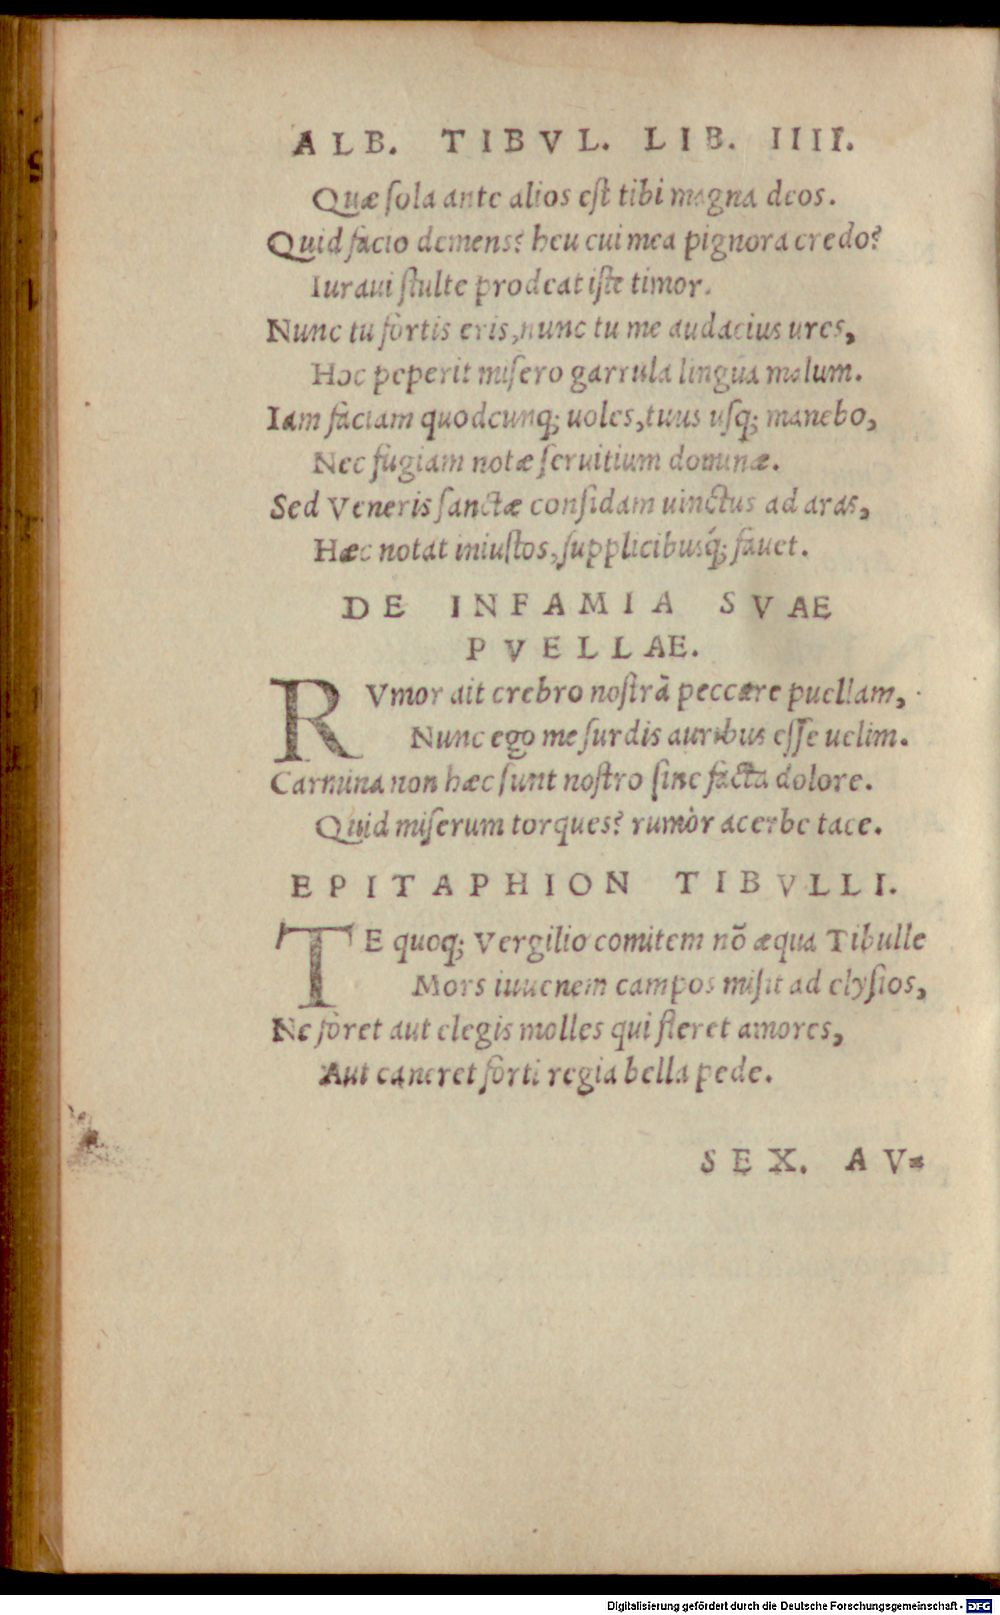 ALB. TIBVL. LIB. IIII.
Quæ ſola ante alios eſt tibi magna deos.
Quid facio demens? heu cui mea pignora credo?
Iuraui ſtulte prodeat iſte timor.
Nunc tu fortis eris, nunc tu me audacius ures,
Hoc peperit miſero garrula lingua malum.
Iam faciam quodcunq; uoles, tuus uſq; manebo,
Nec fugiam notæ ſeruitium dominæ.
Sed Veneris ſanctæ conſidam uinctus ad aras,
Hæc notat iniuſtos, ſupplicibusq́; fauet.
DE INFAMIA SVAE
PVELLAE.
RVmor ait crebro noſtrā peccare puellam,
Nunc ego me ſurdis auribus eſſe uelim.
Carmina non hæc ſunt noſtro ſine facta dolore.
Quid miſerum torques? rumòr acerbe tace.
EPITAPHION TIBVLLI.
TE quoq; Vergilio comitem nō æqua Tibulle
Mors iuuenem campos miſit ad elyſios,
Ne foret aut elegis molles qui fleret amores,
Aut caneret forti regia bella pede.
SEX. AV=
Digitalisierung gefördert durch die Deutsche Forschungsgemeinschaft - DFG